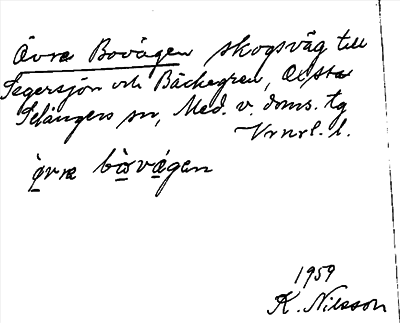 Övra Bovägen skogsväg till
Tegersjön och Bäckegren,
Selångers sn, Med. v. doms. tg
Vrnrl. l.
övra bovägen
1959
K. Nilsson